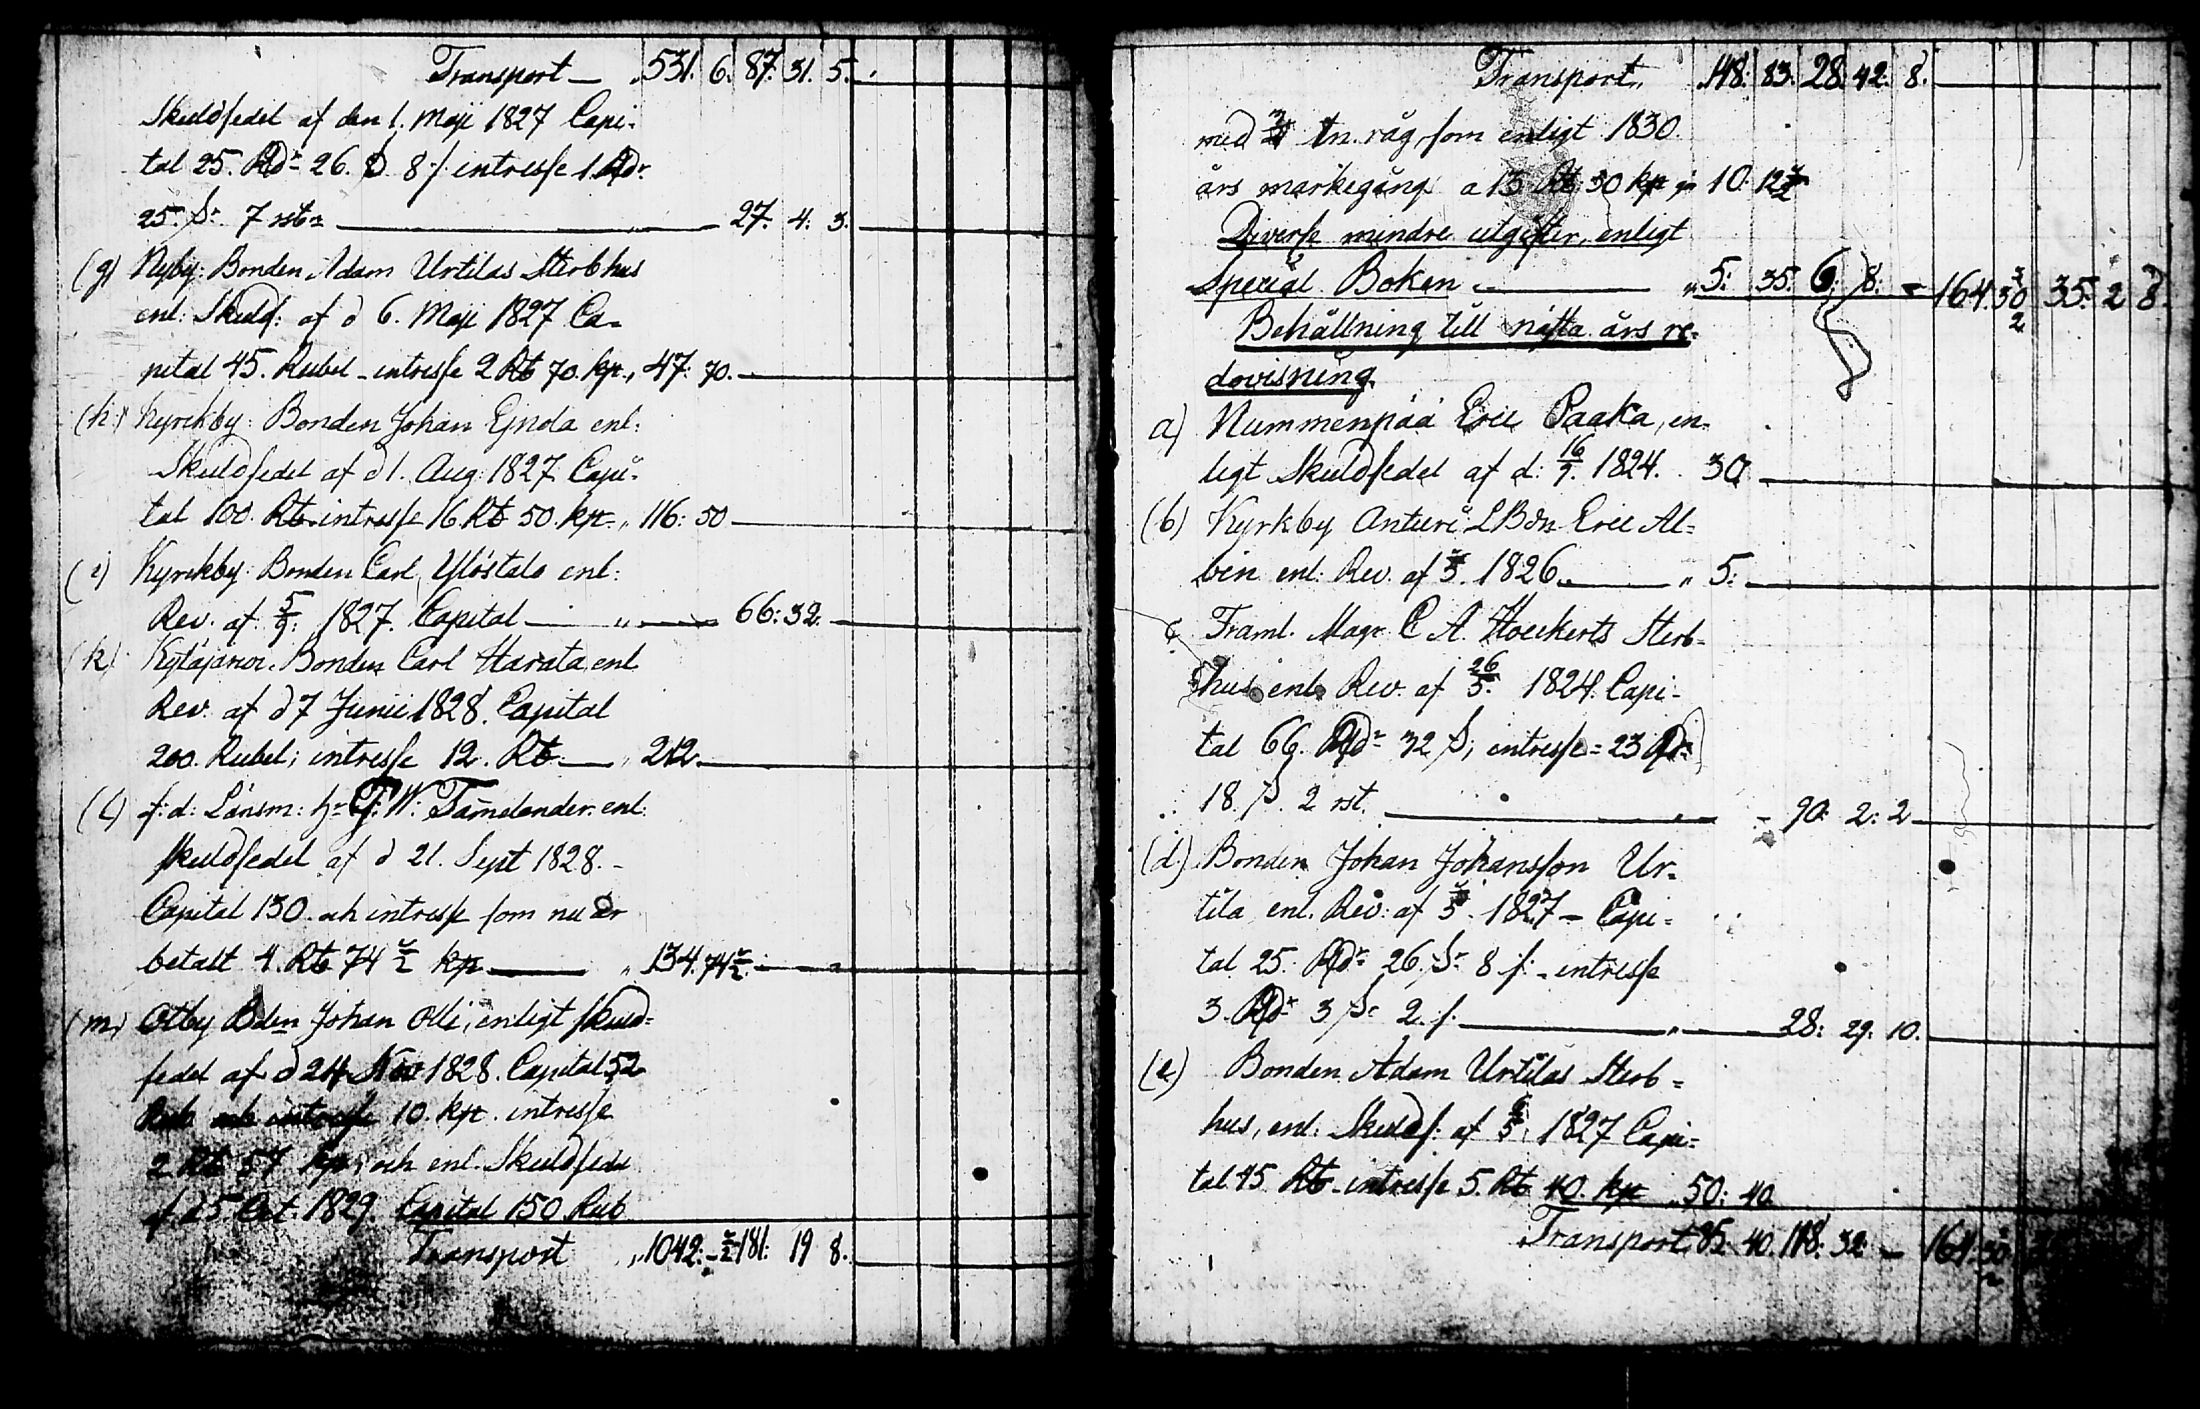 Transport — 531. 6. 87. 31. 5.
Skuldsedel af den 1. Maji 1827 Capi-
tal 25. Rdr 26. S 8 f. intresse 1 Rdr
25. Sr 7 rst. — 27. 4. 3.
(g) Nyby: Bonden Adam Urtilas Sterbhus
enl: Skulds: af d 6. Maji 1827 Ca-
pital 45. Rubel - intresse 2 Rb 70. kp., 47: 70.
(h) Kyrckby: Bonden Johan Ejnola enl:
Skuldsedel af d 1. Aug: 1827 Capi-
tal 100. Rb. intresse 16 Rb 50. kp. „ 116: 50
(i) Kyrckby: Bonden Carl Ylöstalo enl:
Rev. af 5/9. 1827. Capital — „ — 66: 32.
(k) Kytäjärvi. Bonden Carl Harata enl
Rev. af d 7 Junii 1828. Capital
200. Rubel; intresse 12. Rb. — „ 212.
(l) f: d: Länsm: hr G: W: Tamelander. enl:
Skuldsedel af d 21. Sept 1828. -
Capital 130. och intresse som nu är
betalt 4. Rb 74 1/2 kp — „ 134. 74 1/2.
(m) Otby Bden Johan Olli, enligt skuld-
sedel af d 24 Nov 1828. Capital 52
Rub 10. kp. intresse
2 Rb 57 kp; och enl. Skuldsedel
af d 5 Oct. 1829. Capital 150 Rub
Transport „ 1042: - 1/2 181: 19 8.
Transport. 148: 83. 28. 42. 8.
med tn. råg, som enligt 1830
års markegång a 13 Rb 50 kp gr 10. 12 1/2
Diverse mindre utgifter, enligt
Special Boken — „ 5: 35. 6. 8. = 164. 50 35. 2 8.
Behållning till nästa års re-
dovisning
a) Nummenpää Eric Paaka, en-
ligt Skuldsedel af d: 16/9. 1824. 30
(b) Kyrkby Antieri LBdn Eric Al-
bin enl: Rev. af 1826. — „ 5:
c Framl. Magr. C A. Hoeckerts Sterb-
hus enl. Rev. af 26/5. 1824. Capi-
tal 66. Rdr 32 S; intresse = 23 Rdr
18. S. 2 rst. — 90. 2: 2
(d) Bonden Johan Johansson Ur-
tila enl. Rev: af 1827 - Capi-
tal 25. Rdr 26. Sr 8 f. - intresse
3. Rdr 3 Sr 2. f. — „ — 28: 29. 10.
(e) Bonden Adam Urtilas Sterb-
hus, enl: Skulds: af 6/5. 1827 Capi-
tal 45 Rb - intresse 5. Rb 40. kp „ 50: 40.
Transport. 85. 40. 118. 32. — 164. 50